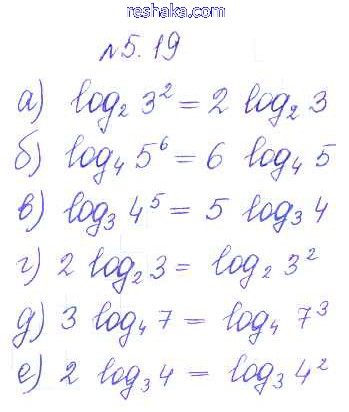 reshaka.com
№5.19
а) log₂ 3² = 2 log₂ 3
б) log₄ 5⁶ = 6 log₄ 5
в) log₃ 4⁵ = 5 log₃ 4
г) 2 log₂ 3 = log₂ 3²
д) 3 log₄ 7 = log₄ 7³
е) 2 log₃ 4 = log₃ 4²